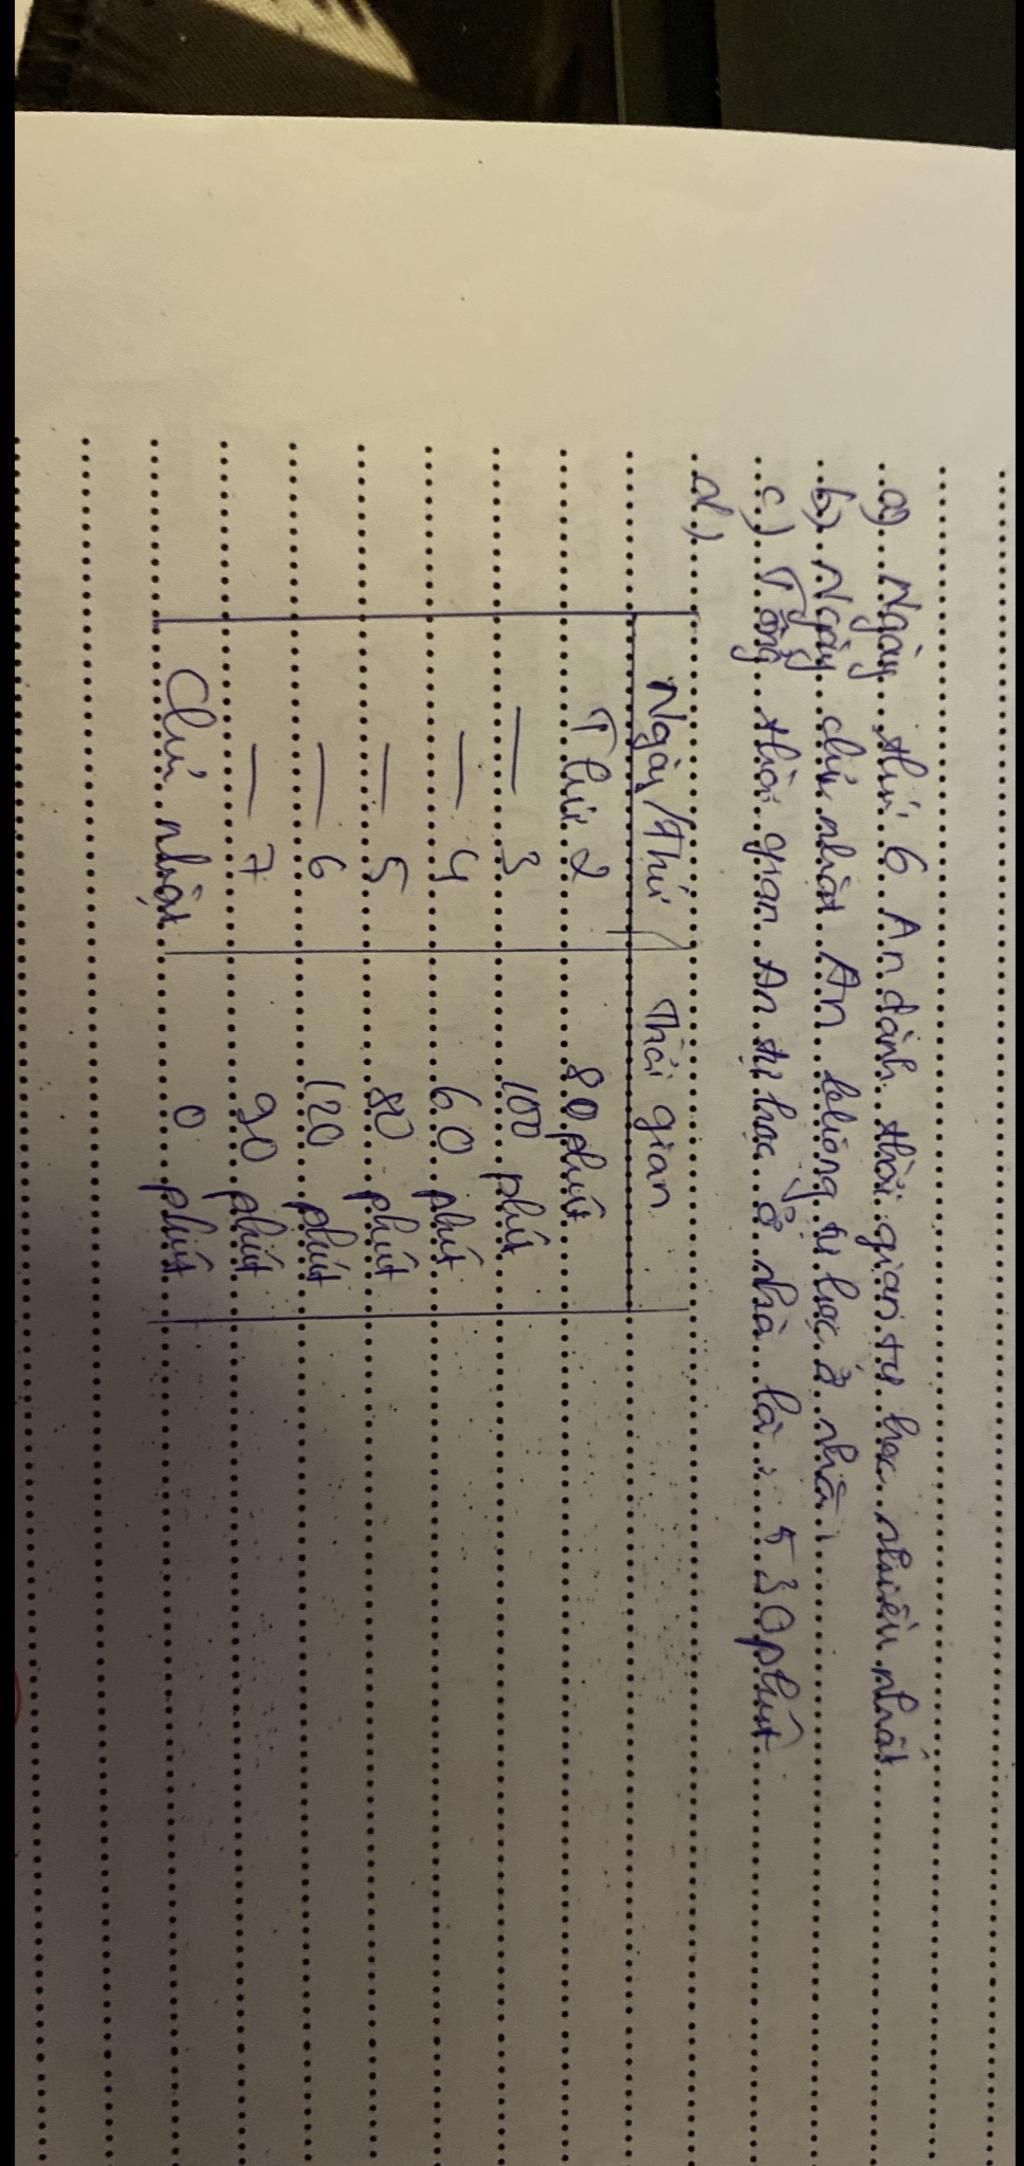 a) Ngày thứ 6 An dành thời gian tự học nhiều nhất
b) Ngày chủ nhật An không tự học ở nhà.
c) Tổng thời gian An tự học ở nhà là: 530 phút
d)
Ngày/Thứ Thời gian
Thứ 2 80 phút
— 3 100 phút
— 4 60 phút
— 5 80 phút
— 6 120 phút
— 7 90 phút
Chủ nhật 0 phút